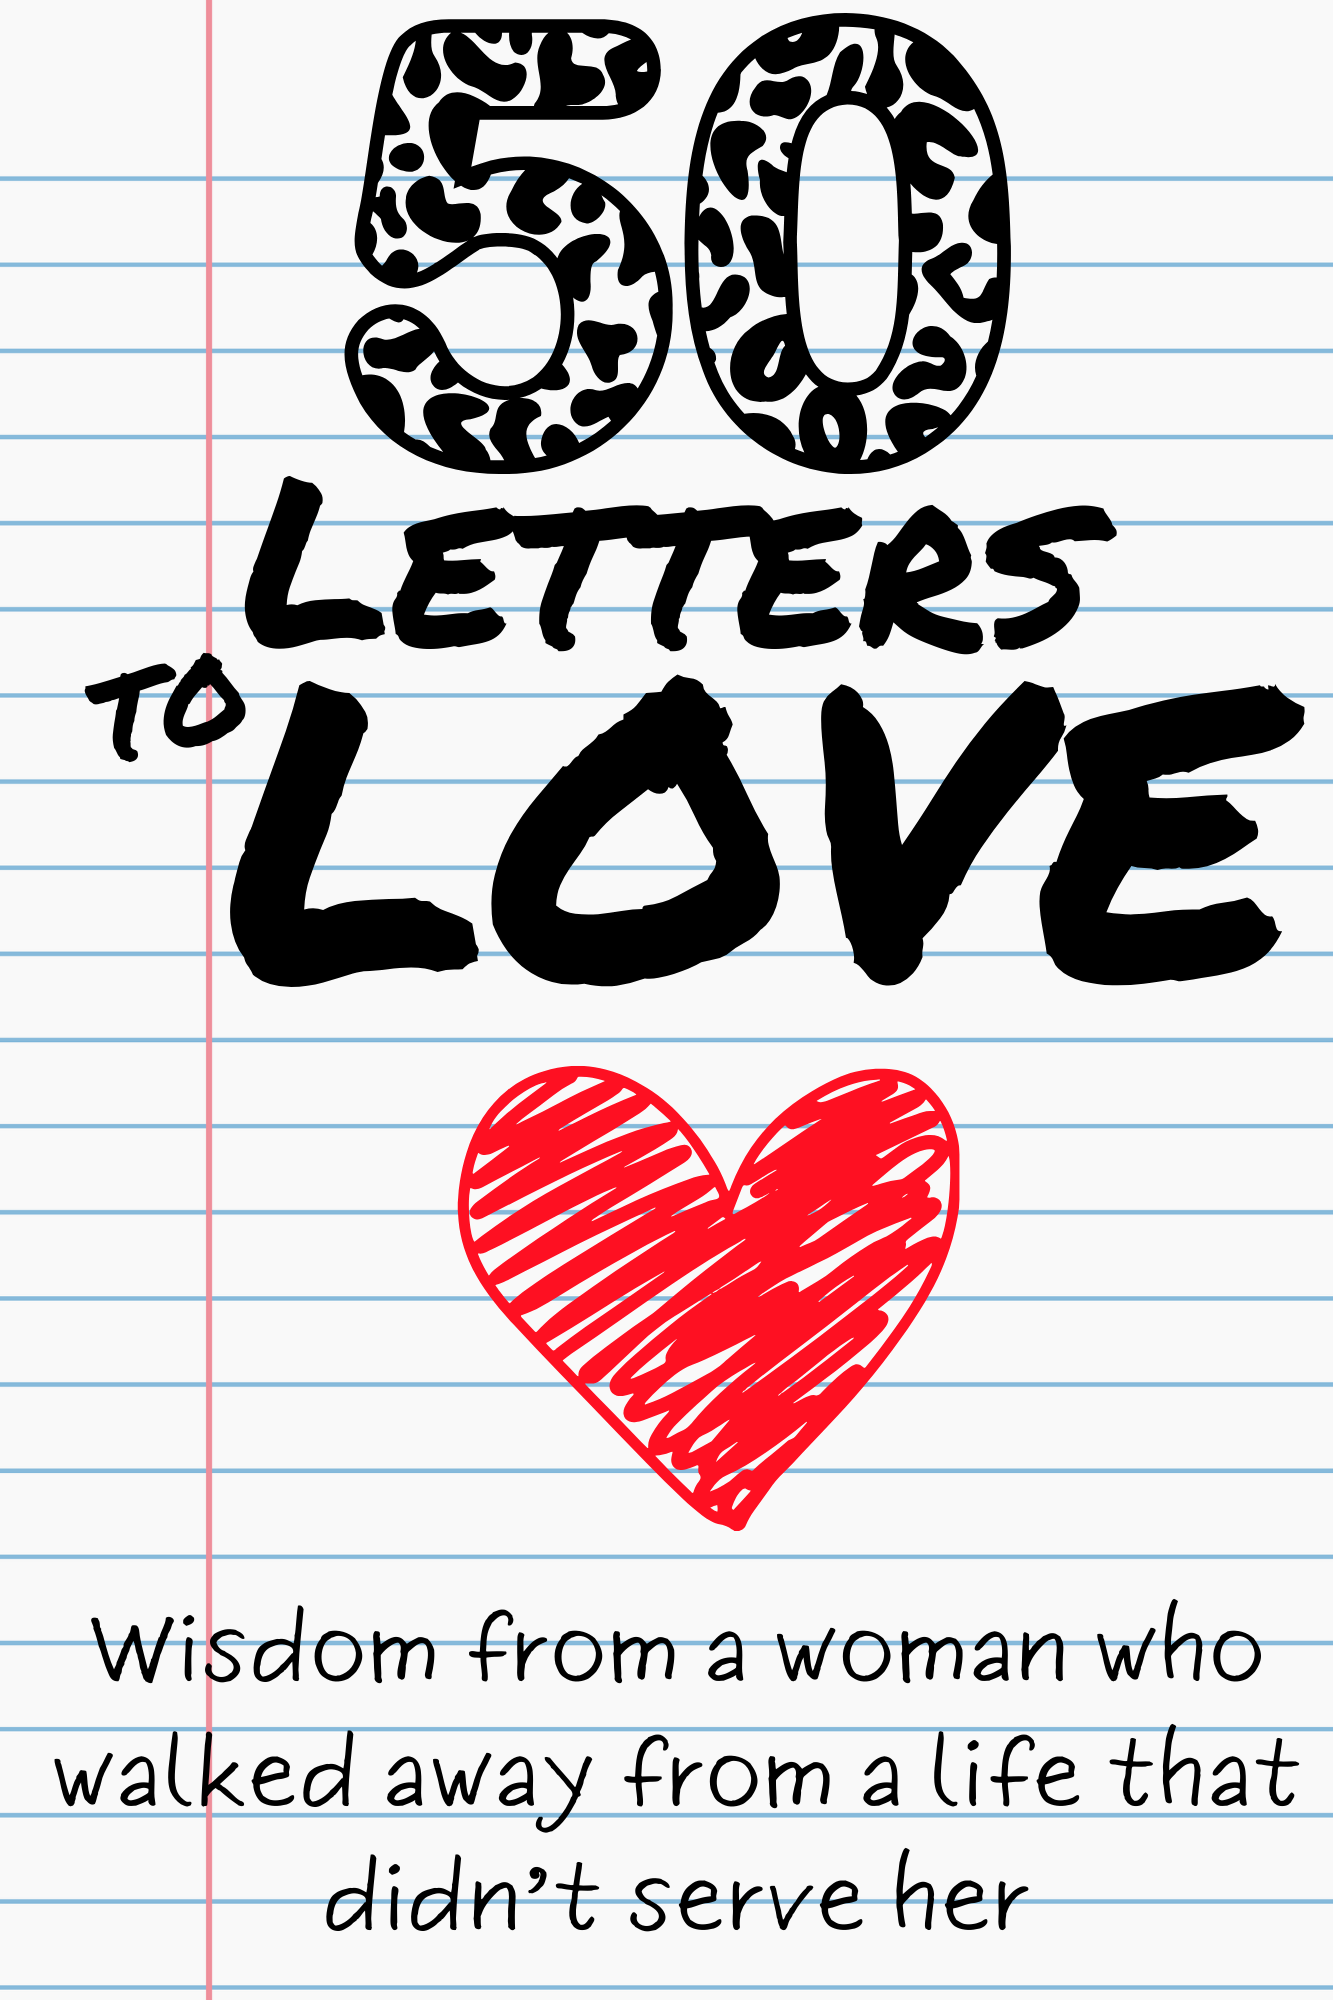 50
LETTERS
TO
LOVE
Wisdom from a woman who
walked away from a life that
didn't serve her